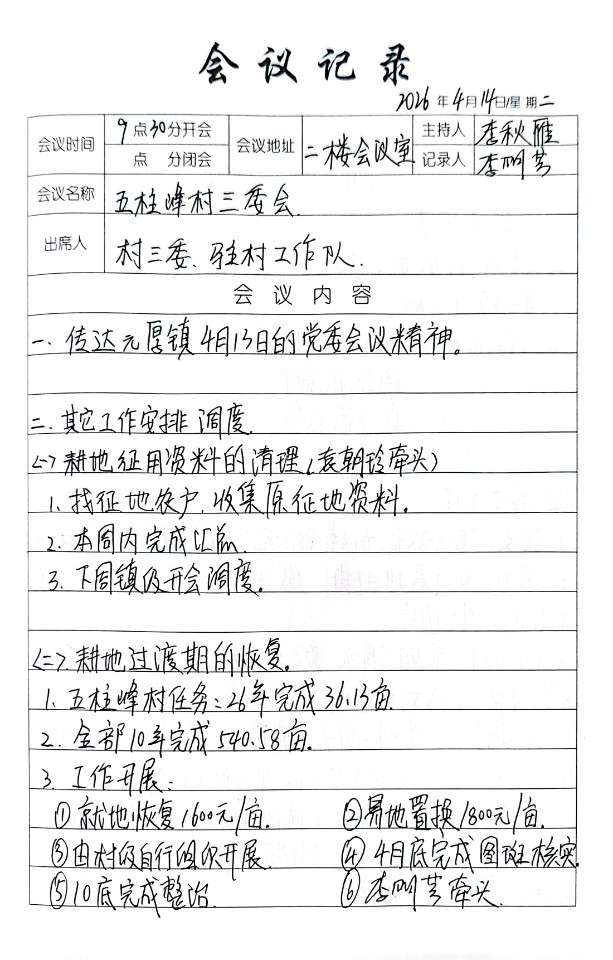 会议记录
2026年4月14日/星期二
会议时间 9点30分开会 点 分闭会 会议地址 二楼会议室 主持人 李秋雁 记录人 李明芳
会议名称 五柱峰村三委会.
出席人 村三委、驻村工作队.
会议内容
一、传达元厚镇4月13日的党委会议精神。
二、其它工作安排调度.
(一)耕地征用资料的清理(袁朝珍牵头)
1.找征地农户,收集原征地资料。
2.本周内完成汇总
3.下周镇级开会调度。
(二).耕地过渡期的恢复。
1.五柱峰村任务:26年完成36.13亩
2.全部10年完成540.58亩.
3.工作开展:
①就地恢复1600元/亩. ②易地置换1800元/亩.
③由村级自行组织开展. ④4月底完成图斑核实.
⑤10底完成整治. ⑥李明芳牵头.